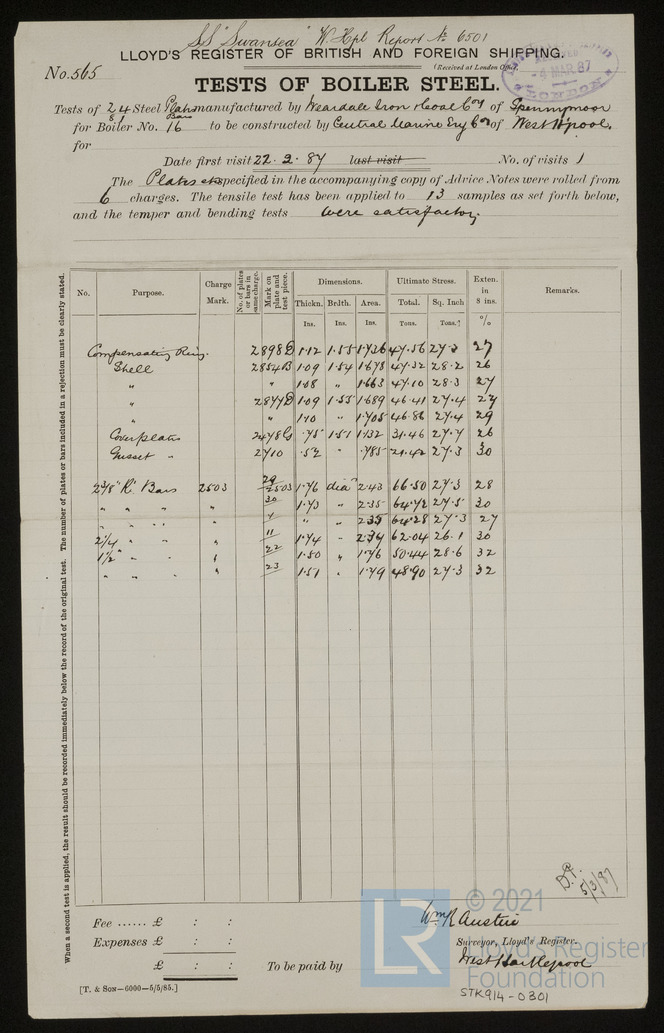 SS "Swansea" W. Hpl Report No 6501
LLOYD'S REGISTER OF BRITISH AND FOREIGN SHIPPING.
No. 565
(Received at London Office,
MAR 87
LONDON
TESTS OF BOILER STEEL.
Tests of 24 Steel Plates manufactured by Weardale Iron & Coal Coy of Spennymoor
81 Bars
for Boiler No. 16 to be constructed by Central Marine Eng Co of West H'pool.
for
Date first visit 22.2.87 last visit No. of visits 1
The Plates specified in the accompanying copy of Advice Notes were rolled from
6 charges. The tensile test has been applied to 13 samples as set forth below,
and the temper and bending tests were satisfactory.
When a second test is applied, the result should be recorded immediately below the record of the original test. The number of plates or bars included in a rejection must be clearly stated.
No. Purpose. Charge Mark. No. of plates or bars in same charge. Mark on plate and test piece. Dimensions. Ultimate Stress. Exten. in 8 ins. Remarks.
Thickn. Brdth. Area. Total. Sq. Inch
Ins. Ins. Ins. Tons. Tons. %
Compensating Ring. 2898D 1.12 1.55 1.736 47.56 27.3 27
Shell 2854B 1.09 1.54 1.678 47.32 28.2 26
" " 1.08 " 1.663 47.10 28.3 27
" 2877D 1.09 1.55 1.689 46.41 27.4 27
" " 1.10 " 1.705 46.86 27.4 29
Cover plates 2478 .75 1.51 1.132 31.46 27.7 26
Gusset " 2710 .52 " .785 21.42 27.3 30
2 3/8" R. Bars 2503 29/2503 1.76 dia 2.43 66.50 27.3 28
" " " " 30 1.73 " 2.35 64.72 27.5 30
" " " " " 2.35 64.28 27.3 27
2 1/4 " " " 11 1.74 " 2.37 62.04 26.1 30
1 1/2" " " " 22 1.50 " 1.76 50.44 28.6 32
" " " " 23 1.51 " 1.79 48.90 27.3 32
5/3/87
Fee ...... £ : :
Expenses £ : :
£ : :
To be paid by
Wm R Austin
Surveyor, Lloyd's Register.
West Hartlepool
[T. & SON—6000—5/5/85.]
STK914-0301
LR
© 2021
Lloyd's Register
Foundation